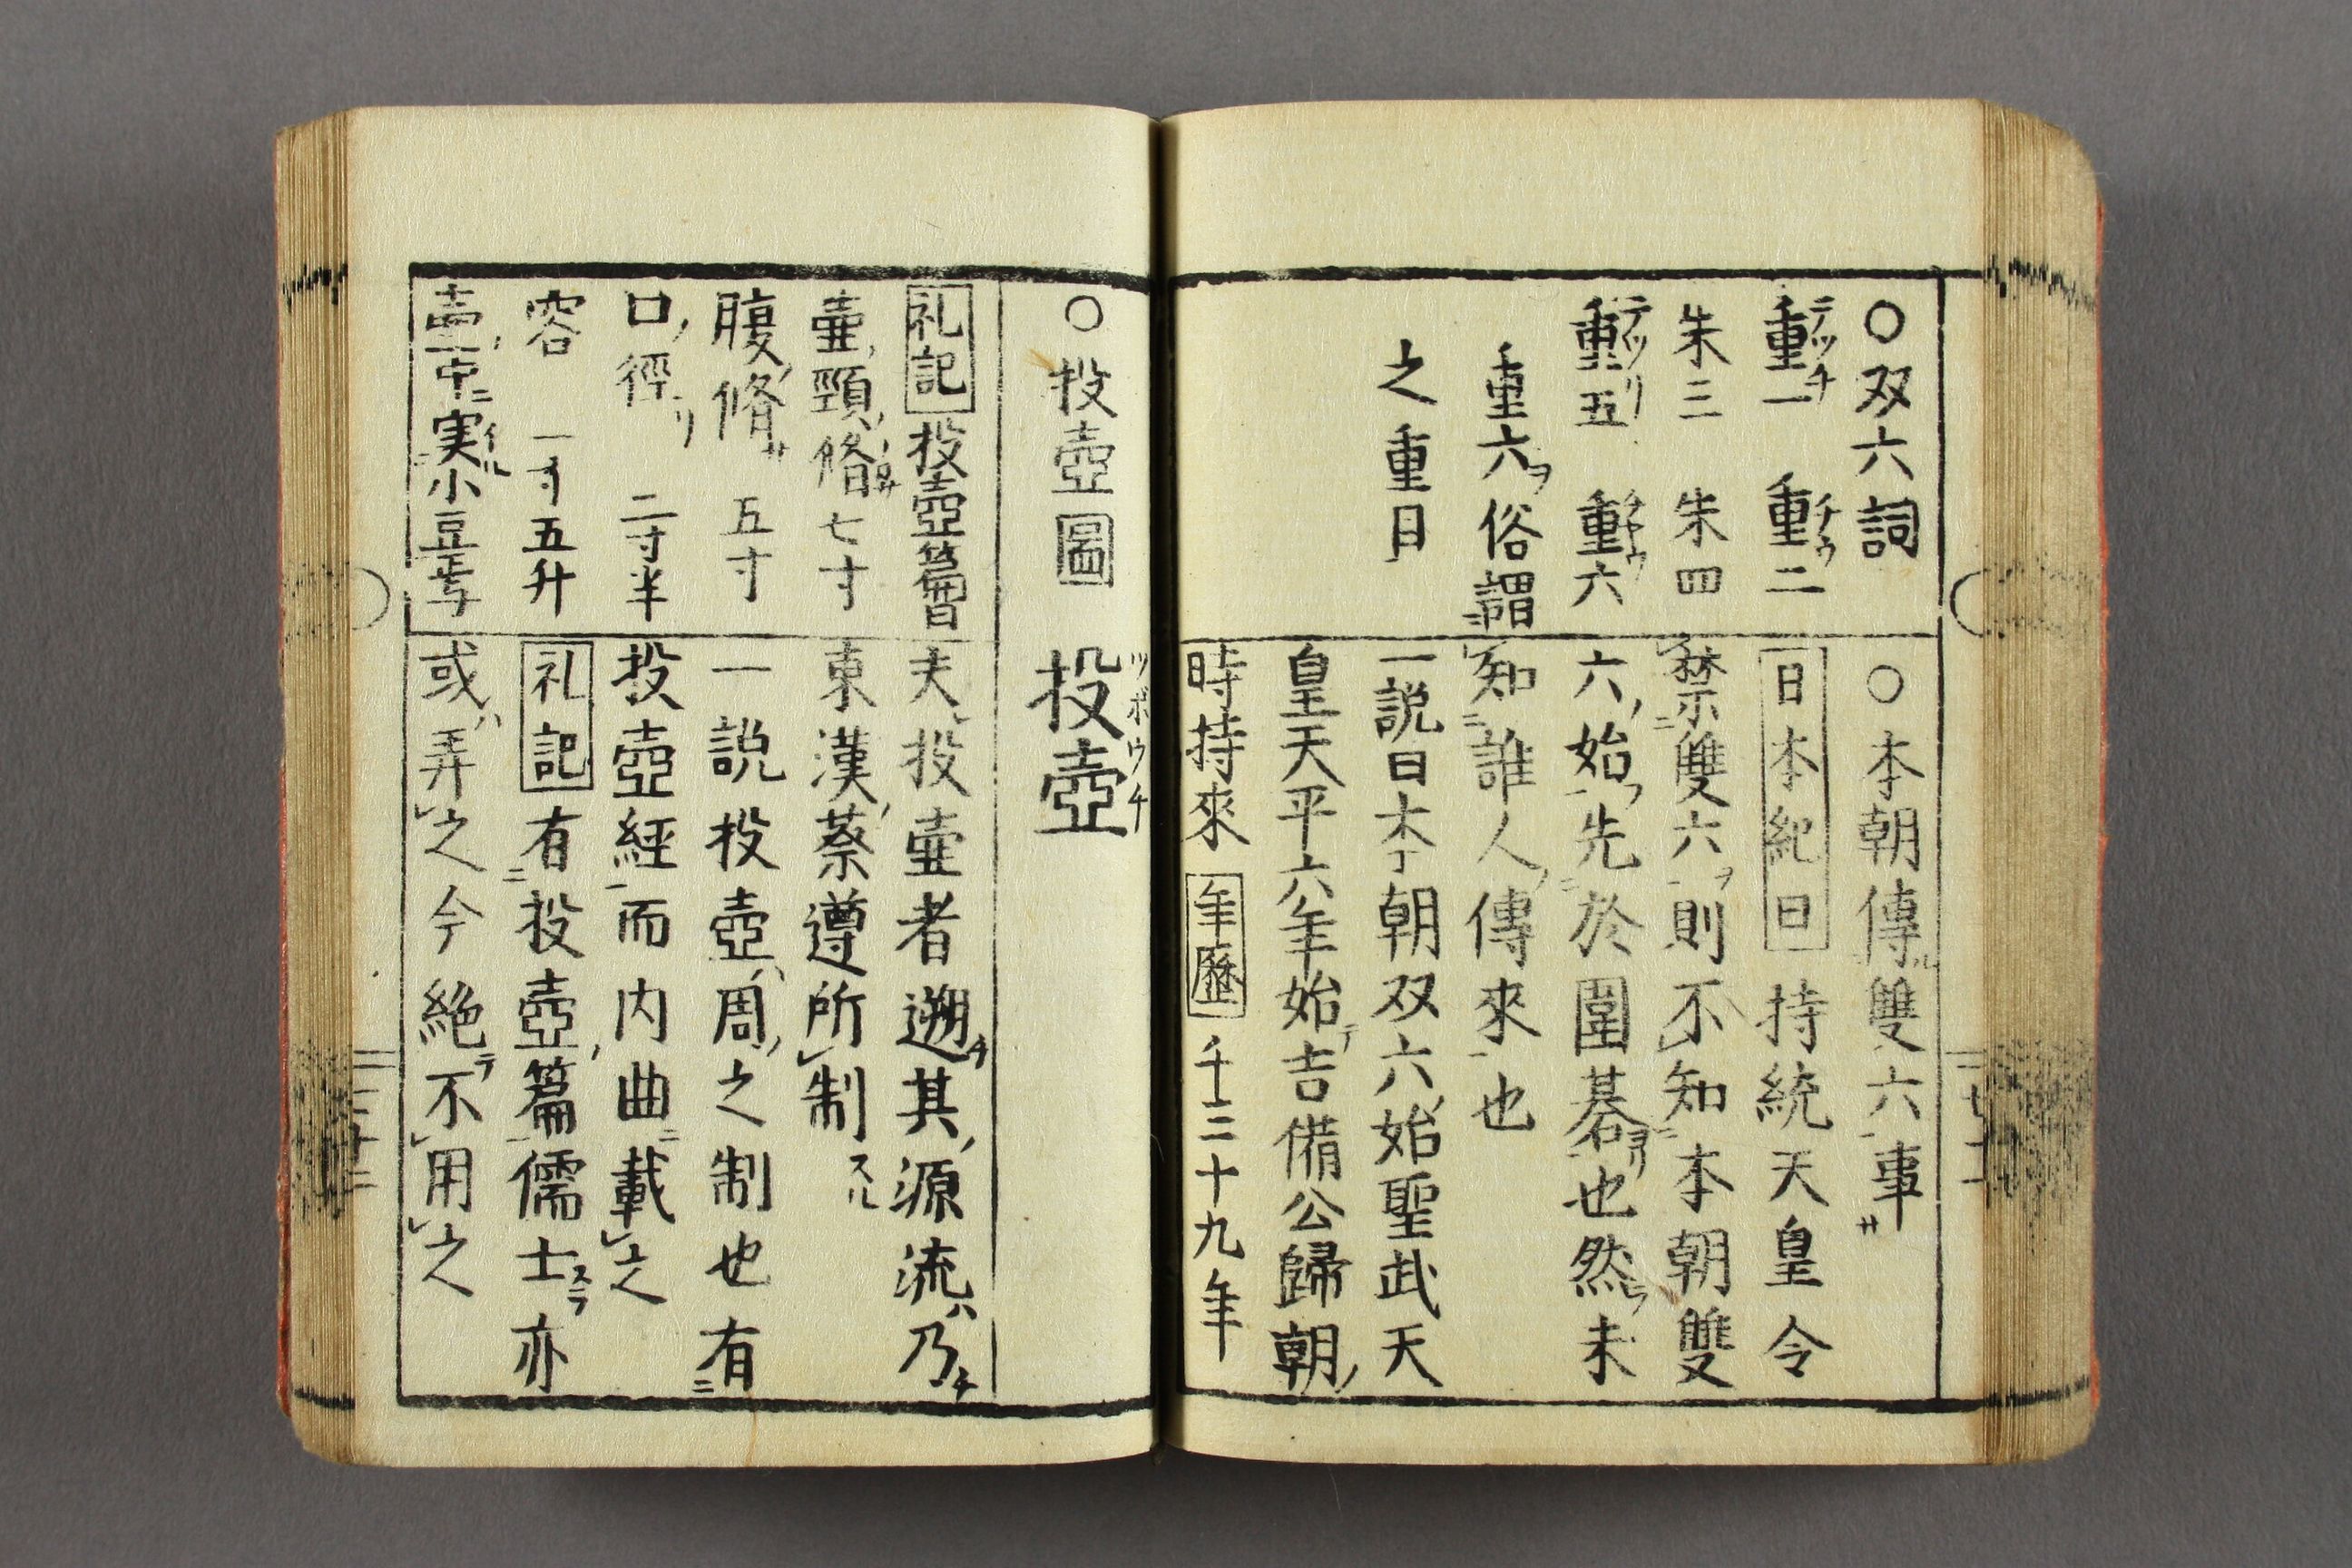 ○双六詞
重一 重二
朱三 朱四
重五 重六
重六俗謂
之重日
○本朝傳雙六事
日本紀曰持統天皇令
禁雙六則不知本朝雙
六始先於圍碁也然未
知誰人傳來也
一説曰本朝双六始聖武天
皇天平六年始吉備公歸朝
時持來年歷千三十九年
○投壺圖
投壺
ツボウチ
礼記投壺篇曰
壷頸脩七寸
腹脩五寸
口徑二寸半
容一寸五升
壷中実小豆焉
夫投壷者遡其源流乃
東漢蔡遵所制
一説投壺周之制也有
投壺經而内曲載之
礼記有投壺篇儒士亦
或弄之今絶不用之